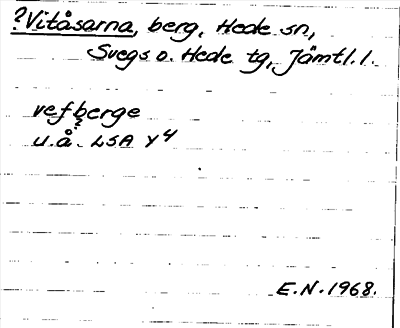 ?Vitåsarna, berg, Hede sn,
Svegs o. Hede tg, Jämtl. l.
vefberge
u.å. LSA Y4
E.N. 1968.